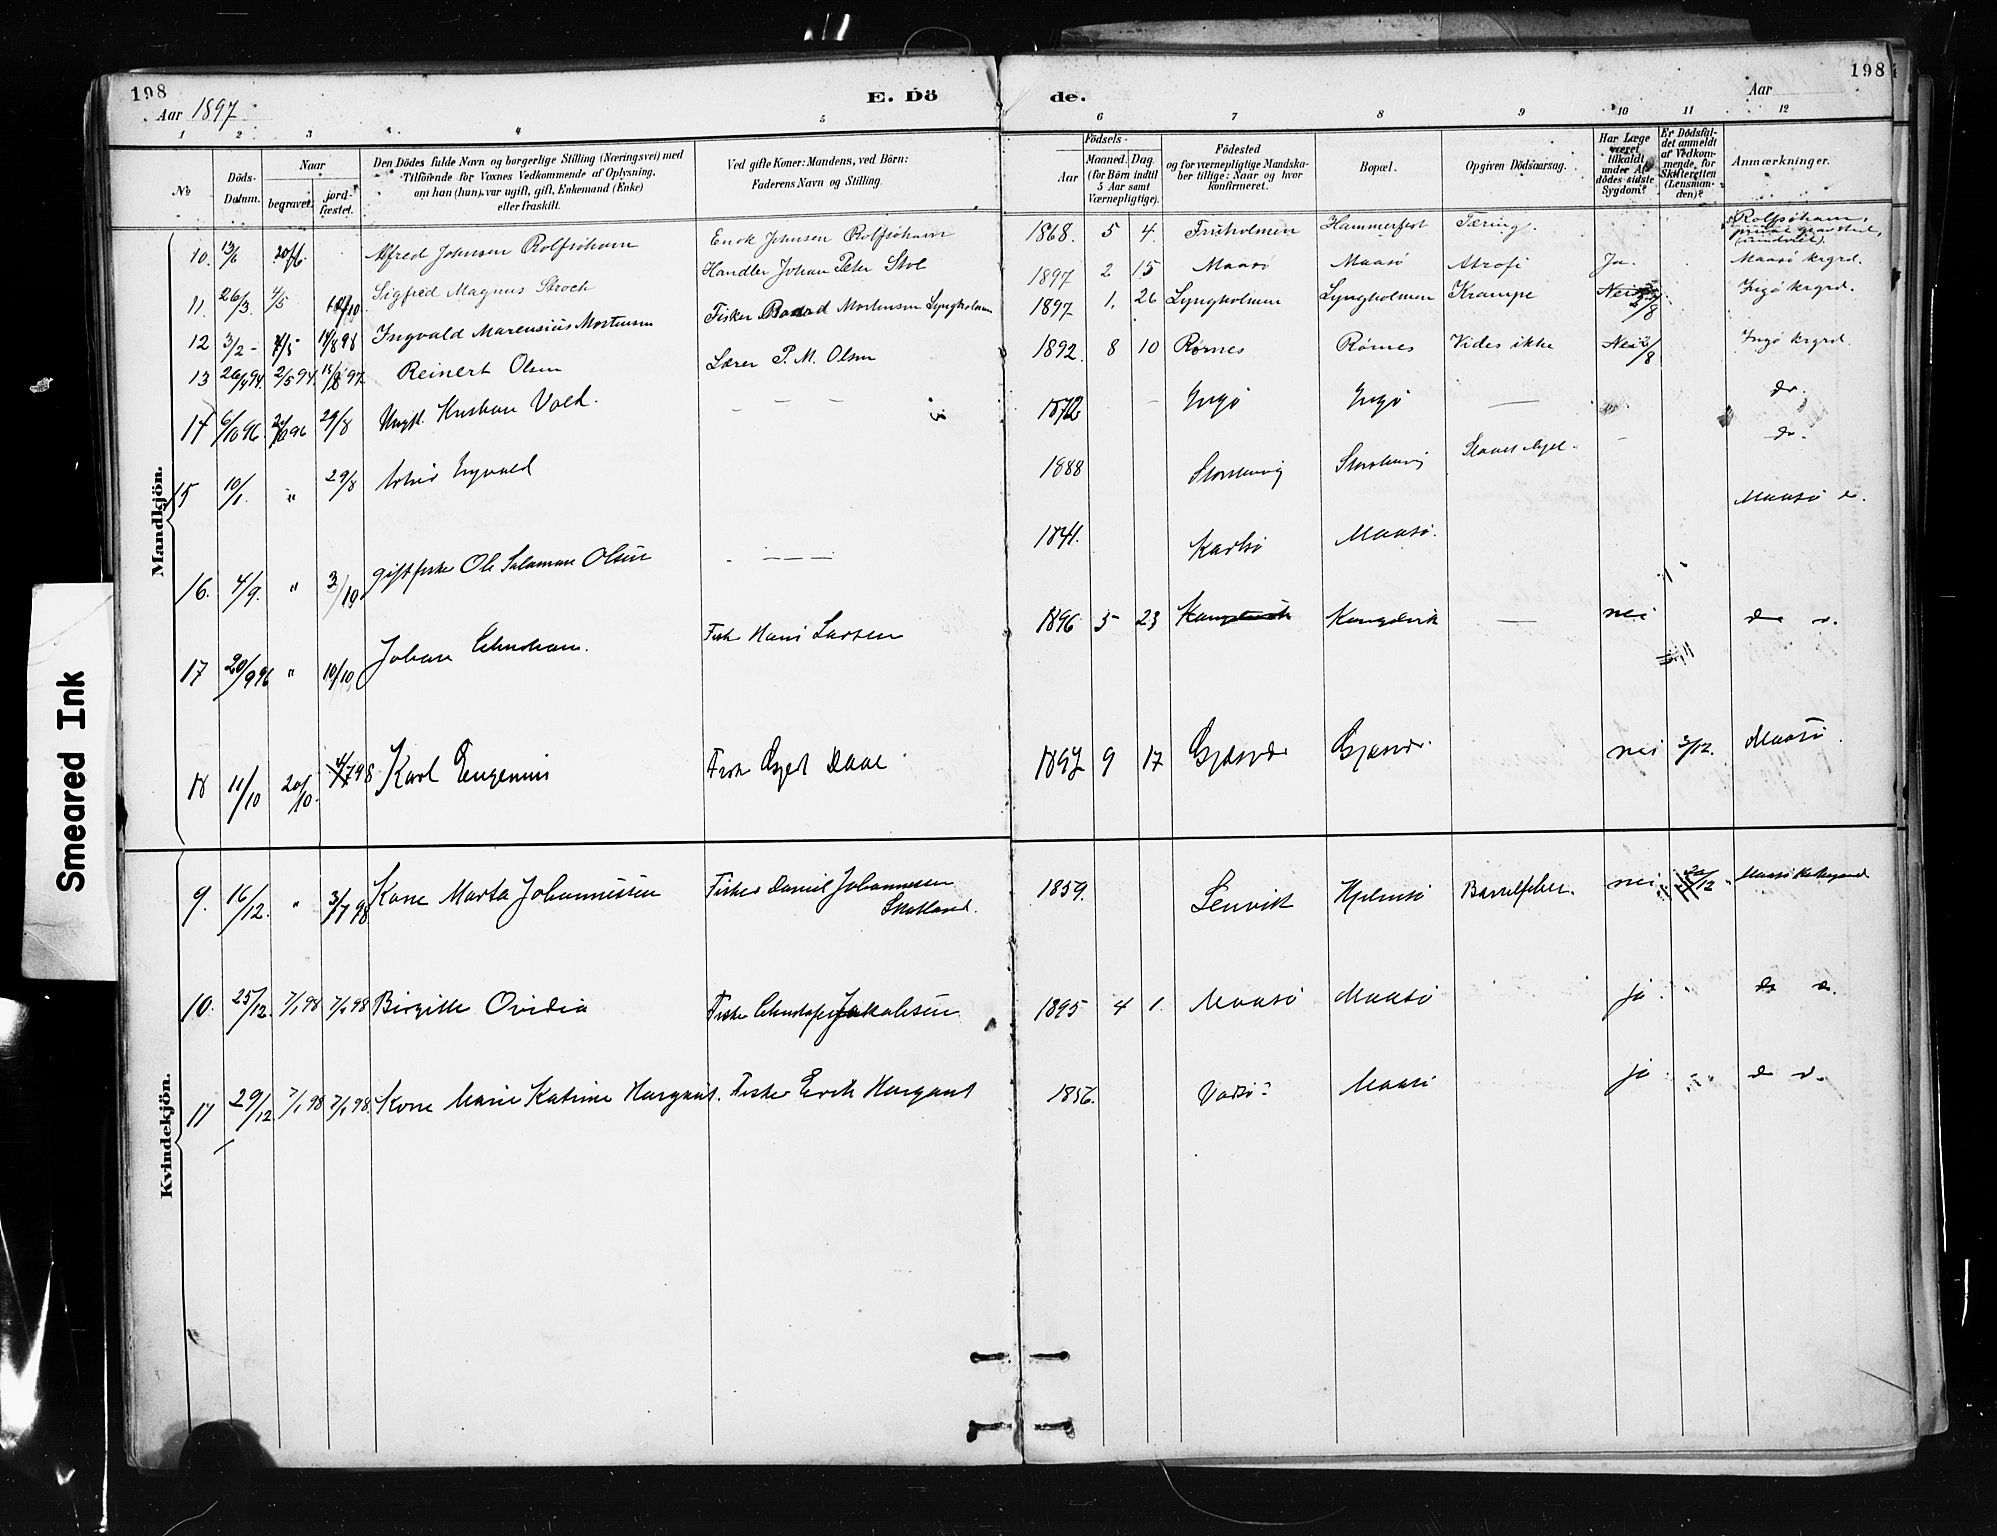 198
Aar 1897
E. Dö
de.
198
Aar
1 2 3 4 5 6 7 8 9 10 11 12
No
Döds-
Datum.
Naar
begravet.
jord-
fæstet.
Den Dödes fulde Navn og borgerlige Stilling (Næringsvei) med
Tilföiende for Voxnes Vedkommende af Oplysning,
om han (hun), var ugift, gift, Enkemand (Enke)
eller fraskilt.
Ved gifte Koner: Mandens, ved Börn:
Faderens Navn og Stilling.
Födsels-
Aar
Maaned. Dag.
(for Börn indtil
5 Aar samt
Værnepligtige).
Födested
og for værnepligtige Mandska-
ber tillige: Naar og hvor
konfirmeret.
Bopæl.
Opgiven Dödsaarsag.
Har Læge
været
tilkaldt
under Af-
dödes sidste
Sygdom?
Er Dödsfal-
det anmeldt
af Vedkom-
mende, for
Skifteretten
(Lensman-
den)?
Anmærkninger.
Mandkjön.
10. 13/6 20/6 Alfred Johnsen Rolfsöhavn Erick Johnsen Rolfsöhavn 1868. 5 4. Fruholmen Hammerfest Tæring. Rolfsöhavn,
11. 26/3. 4/5 Sigfred Magnus Stroch Handler Johan Peter 1897 2 15 Maasö Maasö Atrofi Ja. Maasö krgrd.
12 3/2 - 14/8 98 Ingvald Marensius Mortensen Fisker Mortensen Lyngholmen 1897 1. 26 Lyngholmen Lyngholmen Krampe Nei Ingö krgrd.
13 26/4 94. 2/5 94. 15/8 97 Reinert Olsen Lærer P. M. Olsen 1892. 8 10 Rörnes Rörnes Vides ikke Nei Ingö krgrd.
14 6/10 96 29/8 Ungk. Kristian Vold. - - - - 1872 - Ingö Ingö — do.
15 10/1. " 29/8 Ingvald 1888 - do.
16. 4/9. " 3/10 gift fisker Ole Salamon Olsen - - - - 1841. Karlsö Maasö. Maasö
17 20/9 96 " 10/10 Johan Fisk Hans Larsen 1896 5 23 — nei
18 11/10 20/10. 4/7 98 Karl Eugenius Fisk Daae 1897 9 17 Gjæsvær Gjæsvær nei 2/12. Maasö
Kvindekjön.
9. 16/12. " 3/7 98 Kone Marta Johannessen Fisker Daniel Johannessen 1859. Lenvik Hjelmsö Barselfeber. nei Maasö
10. 25/12. 7/1 98 7/1 98 Birgitte Ovidia Fisker Jakobsen 1895 4 1. Maasö Maasö ja
11 29/12 7/1 98 7/1 98. Kone Marie Katrine Hargaut. Fisker Erik Hargaut 1856. Vadsö? Maasö ja
Smeared Ink